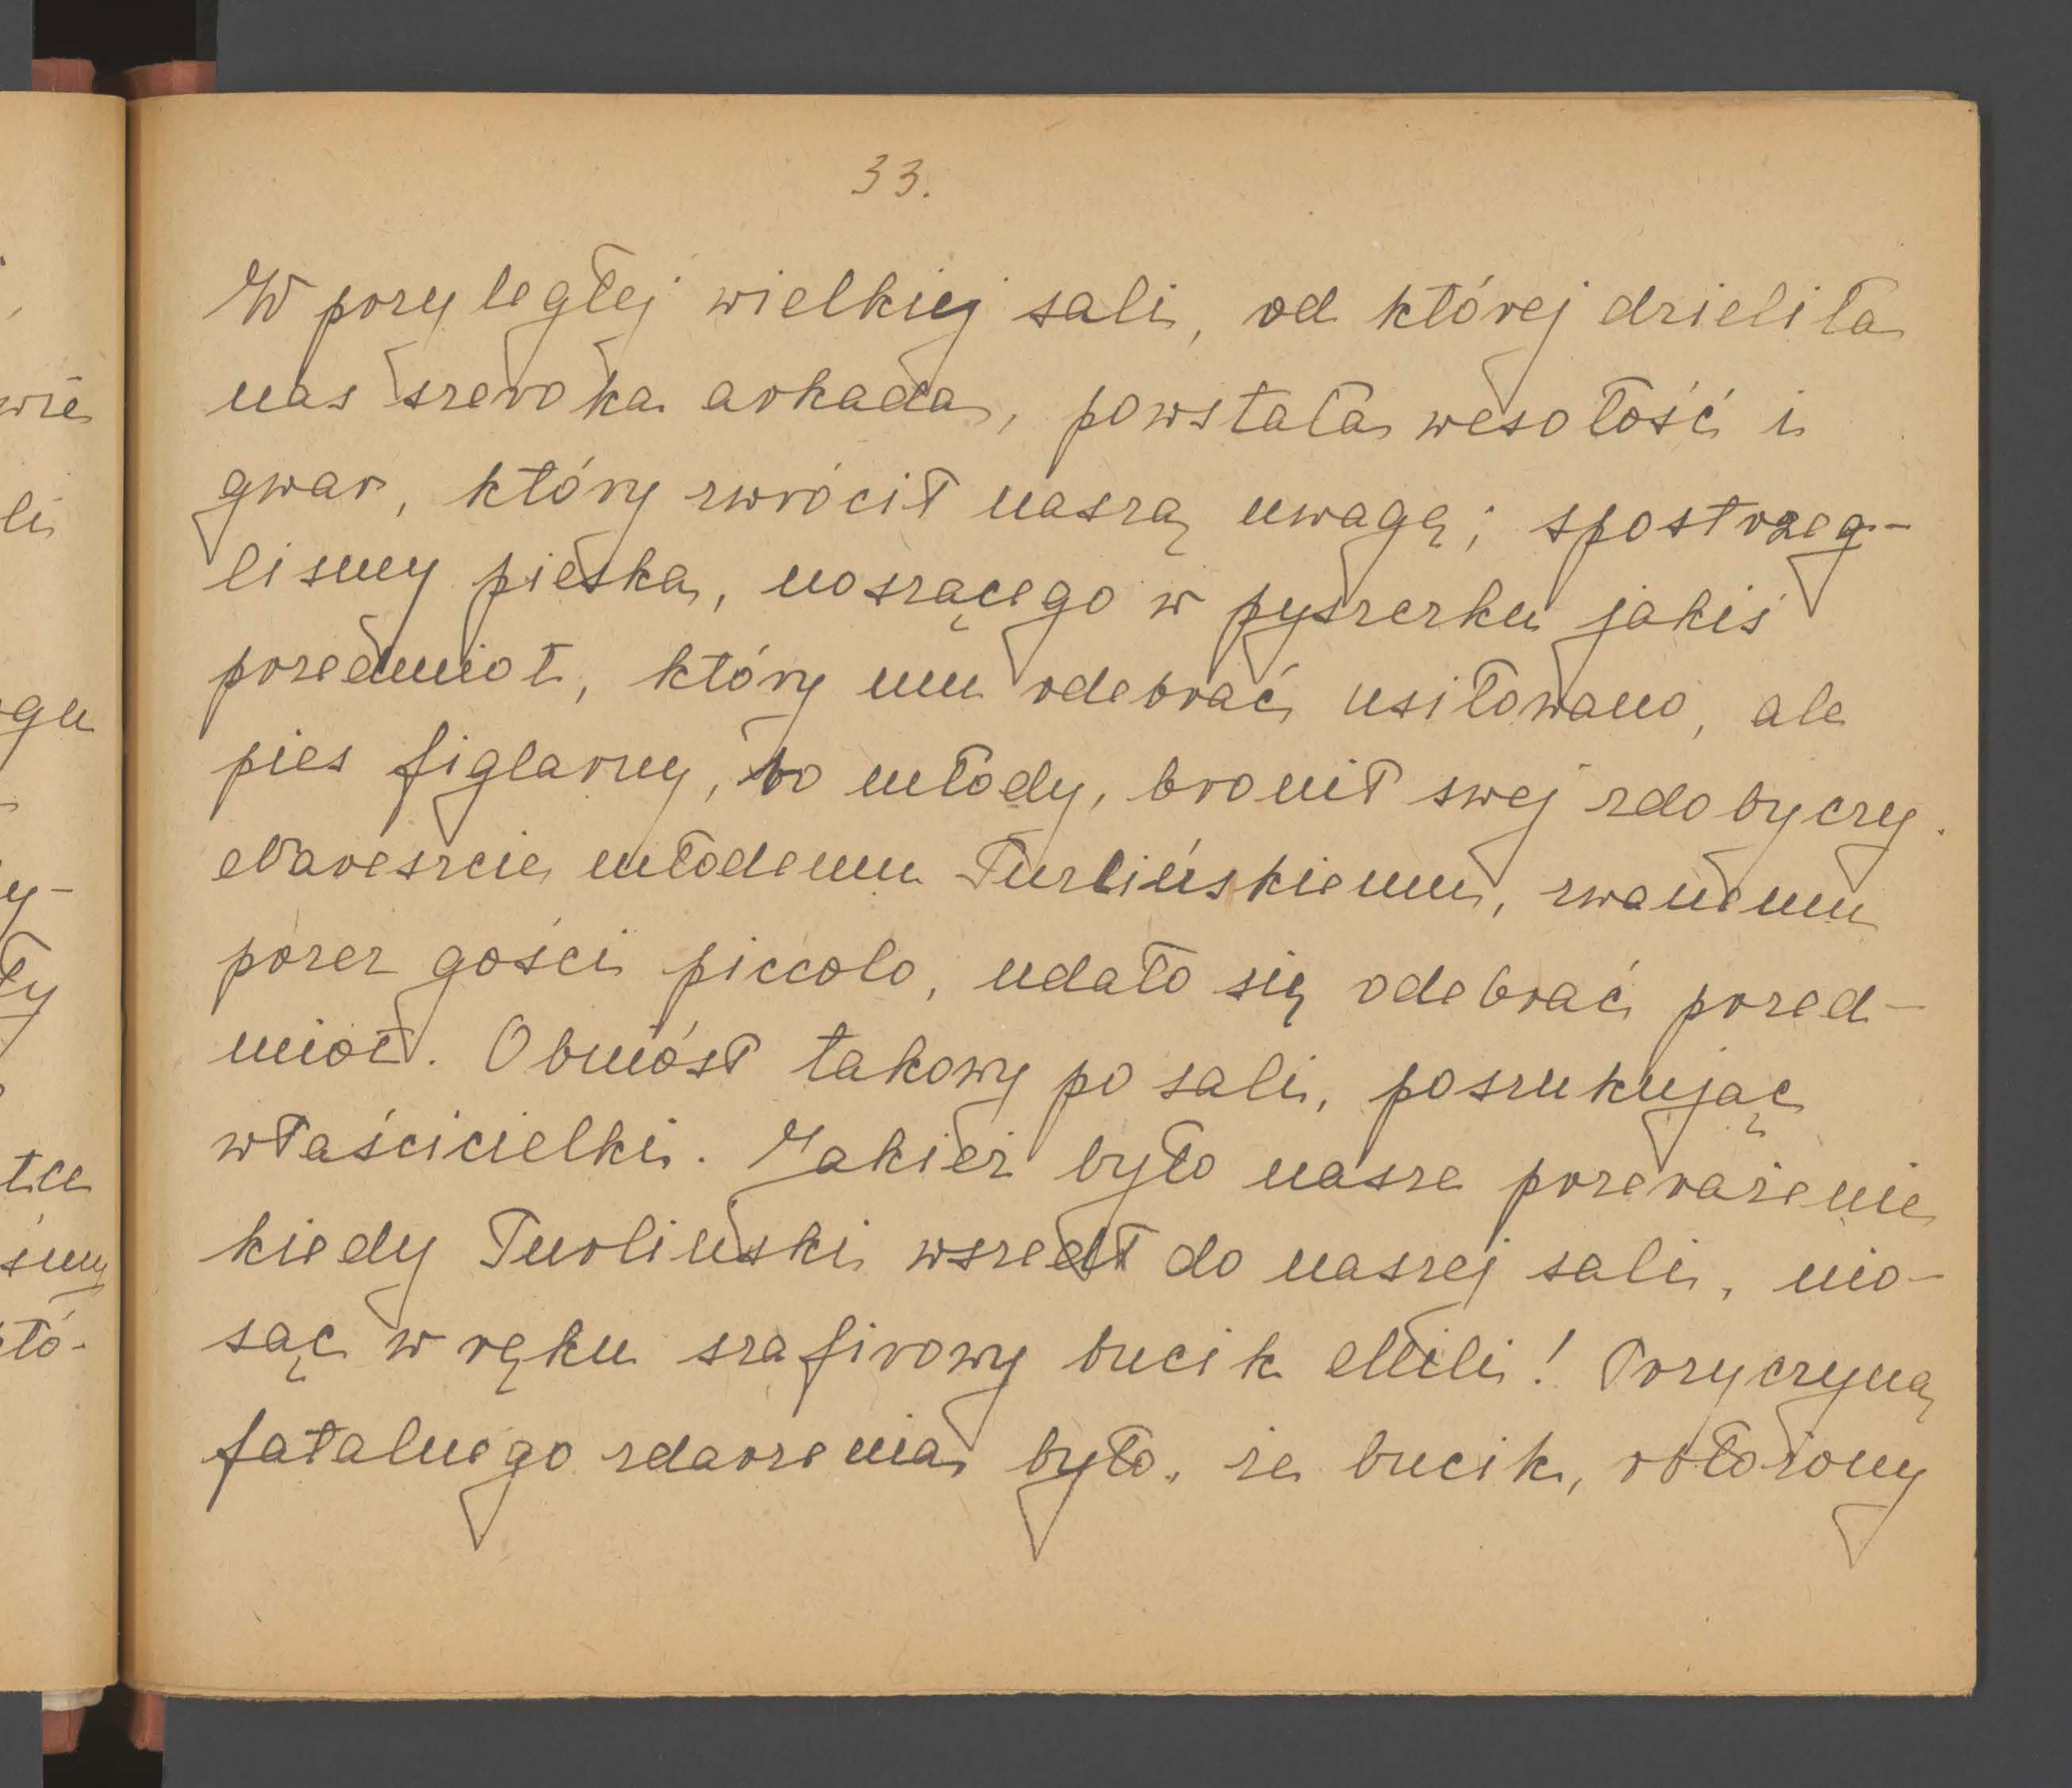 33.
W przyległej wielkiej sali, od której dzieliła
nas szeroka arkada, powstała wesołość i
gwar, który zwrócił naszą uwagę; spostrzeg-
lismy pieska, noszącego w pyszczku jakiś
przedmiot, który mu odebrać usiłowano, ale
pies figlarny, bo młody, bronił swej zdobyczy.
Nareszcie młodemu Turlińskiemu, zwanemu
przez gości piccolo, udało się odebrać przed-
miot. Obniósł takowy po sali, poszukując
właścicielki. Jakież było nasze przerażenie
kiedy Turlinski wszedł do naszej sali, nio-
sąc w ręku szafirowy bucik Mili! Przyczyną
fatalnego zdarzenia było, że bucik, obłożony
wie
li
ogu
y-
ły
tce
śmy
tó-